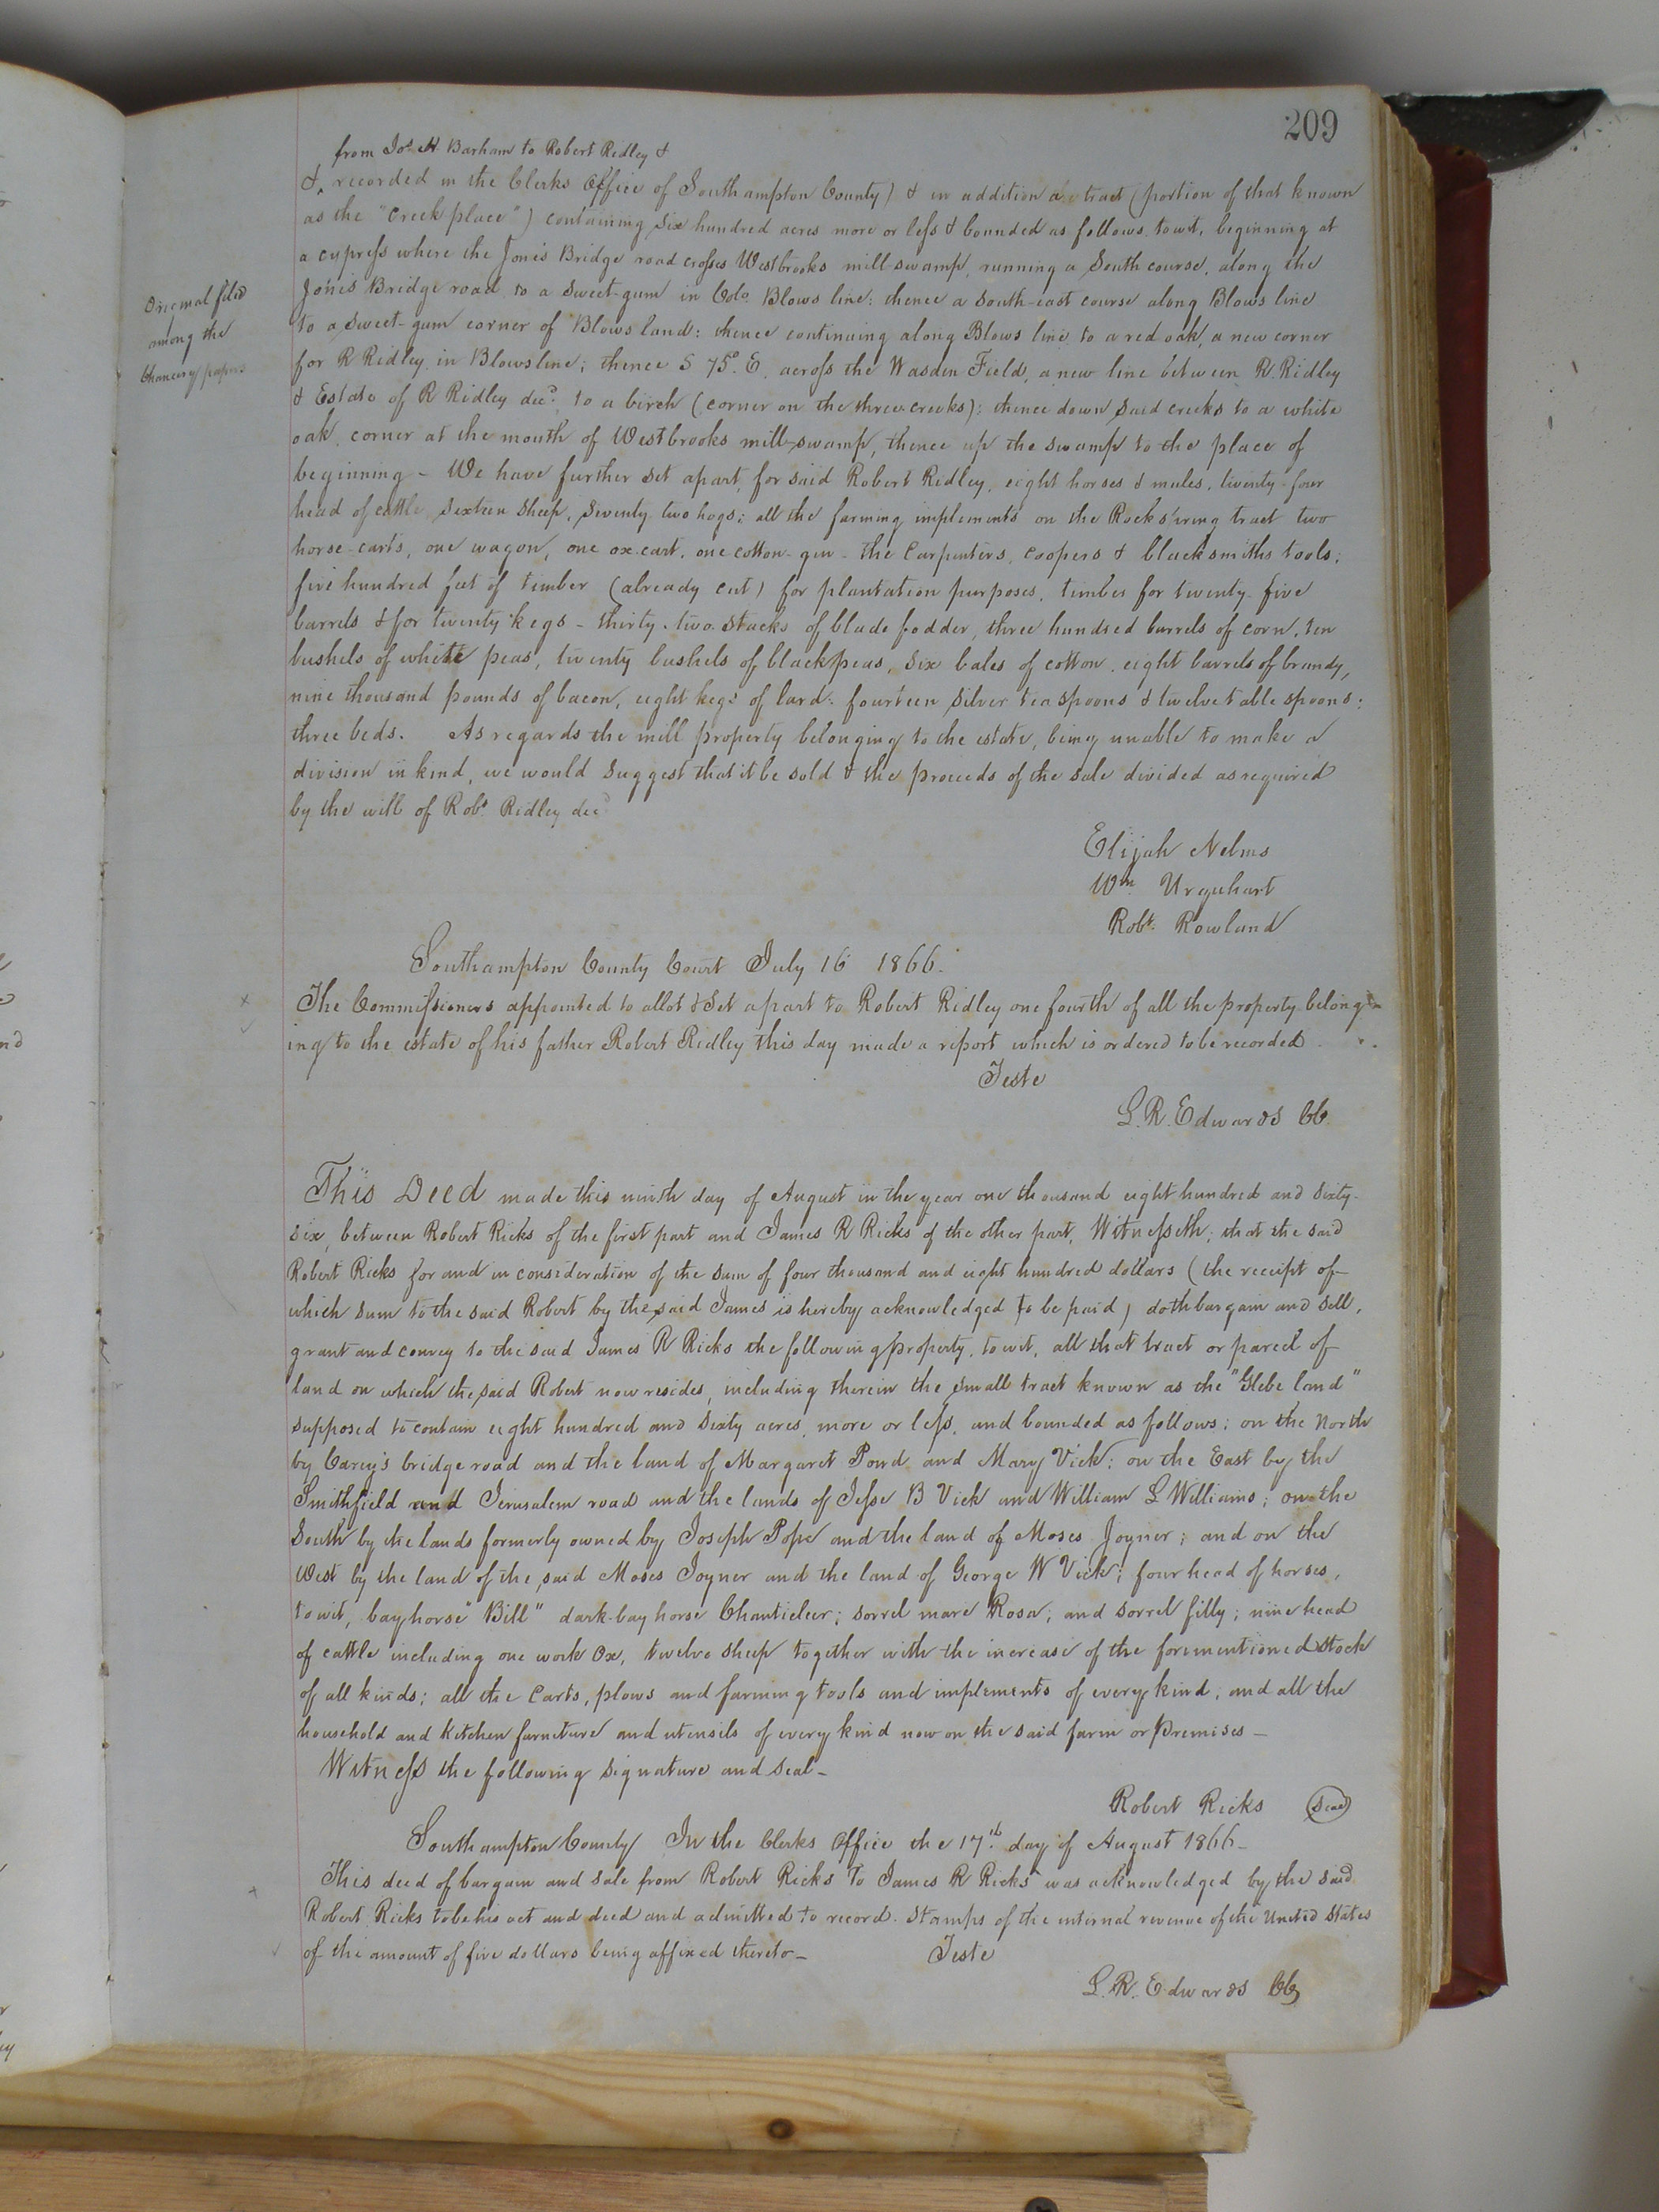 209
from Jos. H. Barham to Robert Ridley &
& recorded in the Clerks Office of Southampton County) & in addition a tract (portion of that known
as the "Creek place") containing six hundred acres more or less & bounded as follows, towit, beginning at
a cypress where the Jones Bridge road crosses Westbrooks mill-swamp, running a South course, along the
Jones Bridge road to a sweet-gum in Colo. Blows line: thence a south-east course along Blows line
to a sweet-gum corner of Blows land: thence continuing along Blows line to a red oak, a new corner
for R Ridley in Blows line; thence S 75° E. across the Wasden Field, a new line between R. Ridley
& Estate of R Ridley decd. to a birch (corner on the three creeks): thence down said creeks to a white
oak, corner at the mouth of Westbrooks mill-swamp, thence up the swamp to the place of
beginning - We have further set apart, for said Robert Ridley, eight horses & mules, twenty-four
head of cattle, sixteen sheep, seventy two hogs; all the farming implements on the Rock Spring tract two
horse-carts, one wagon, one ox-cart, one cotton-gin - the Carpenters, Coopers & blacksmiths tools;
five hundred feet of timber (already cut) for plantation purposes, timber for twenty-five
barrels & for twenty kegs - thirty-two stacks of blade fodder, three hundred barrels of corn, ten
bushels of white peas, twenty bushels of black peas, six bales of cotton, eight barrels of brandy,
nine thousand pounds of bacon, eight kegs of lard: fourteen silver tea spoons & twelve table spoons:
three beds. As regards the mill property belonging to the estate, being unable to make a
division in kind, we would suggest that it be sold & the proceeds of the sale divided as required
by the will of Robt. Ridley decd
Original filed
among the
Chancery papers
Elijah Nelms
Wm Urquhart
Robt. Rowland
Southampton County Court July 16 1866.
The Commissioners appointed to allot & set apart to Robert Ridley one fourth of all the property belong-
ing to the estate of his father Robert Ridley this day made a report which is ordered to be recorded.
Teste
L. R. Edwards CC
This Deed made this ninth day of August in the year one thousand eight hundred and sixty-
six, between Robert Ricks of the first part and James R Ricks of the other part, Witnesseth; that the said
Robert Ricks for and in consideration of the sum of four thousand and eight hundred dollars (the receipt of
which sum to the said Robert by the said James is hereby acknowledged to be paid) doth bargain and sell,
grant and convey to the said James R Ricks the following property, towit, all that tract or parcel of
land on which the said Robert now resides, including therein the small tract known as the "Glebe land"
supposed to contain eight hundred and sixty acres, more or less, and bounded as follows: on the North
by Carey's bridge road and the land of Margaret Pond and Mary Vick: on the East by the
Smithfield and Jerusalem road and the lands of Jesse B Vick and William L Williams; on the
South by the lands formerly owned by Joseph Pope and the land of Moses Joyner; and on the
West by the land of the said Moses Joyner and the land of George W Vick; four head of horses,
to wit, bay horse "Bill" dark-bay horse Chanticleer; sorrel mare Rosa; and sorrel filly; nine head
of cattle including one work Ox, twelve sheep together with the increase of the forementioned stock
of all kinds; all the Carts, plows and farming tools and implements of every kind; and all the
household and Kitchen furniture and utensils of every kind now on the said farm or premises -
Witness the following signature and seal -
Robert Ricks (Seal)
Southampton County In the Clerks Office the 17th. day of August 1866 -
This deed of bargain and sale from Robert Ricks To James R Ricks was acknowledged by the said
Robert Ricks to be his act and deed and admitted to record. Stamps of the internal revenue of the United States
of the amount of five dollars being affixed thereto - Teste
L. R. Edwards CC